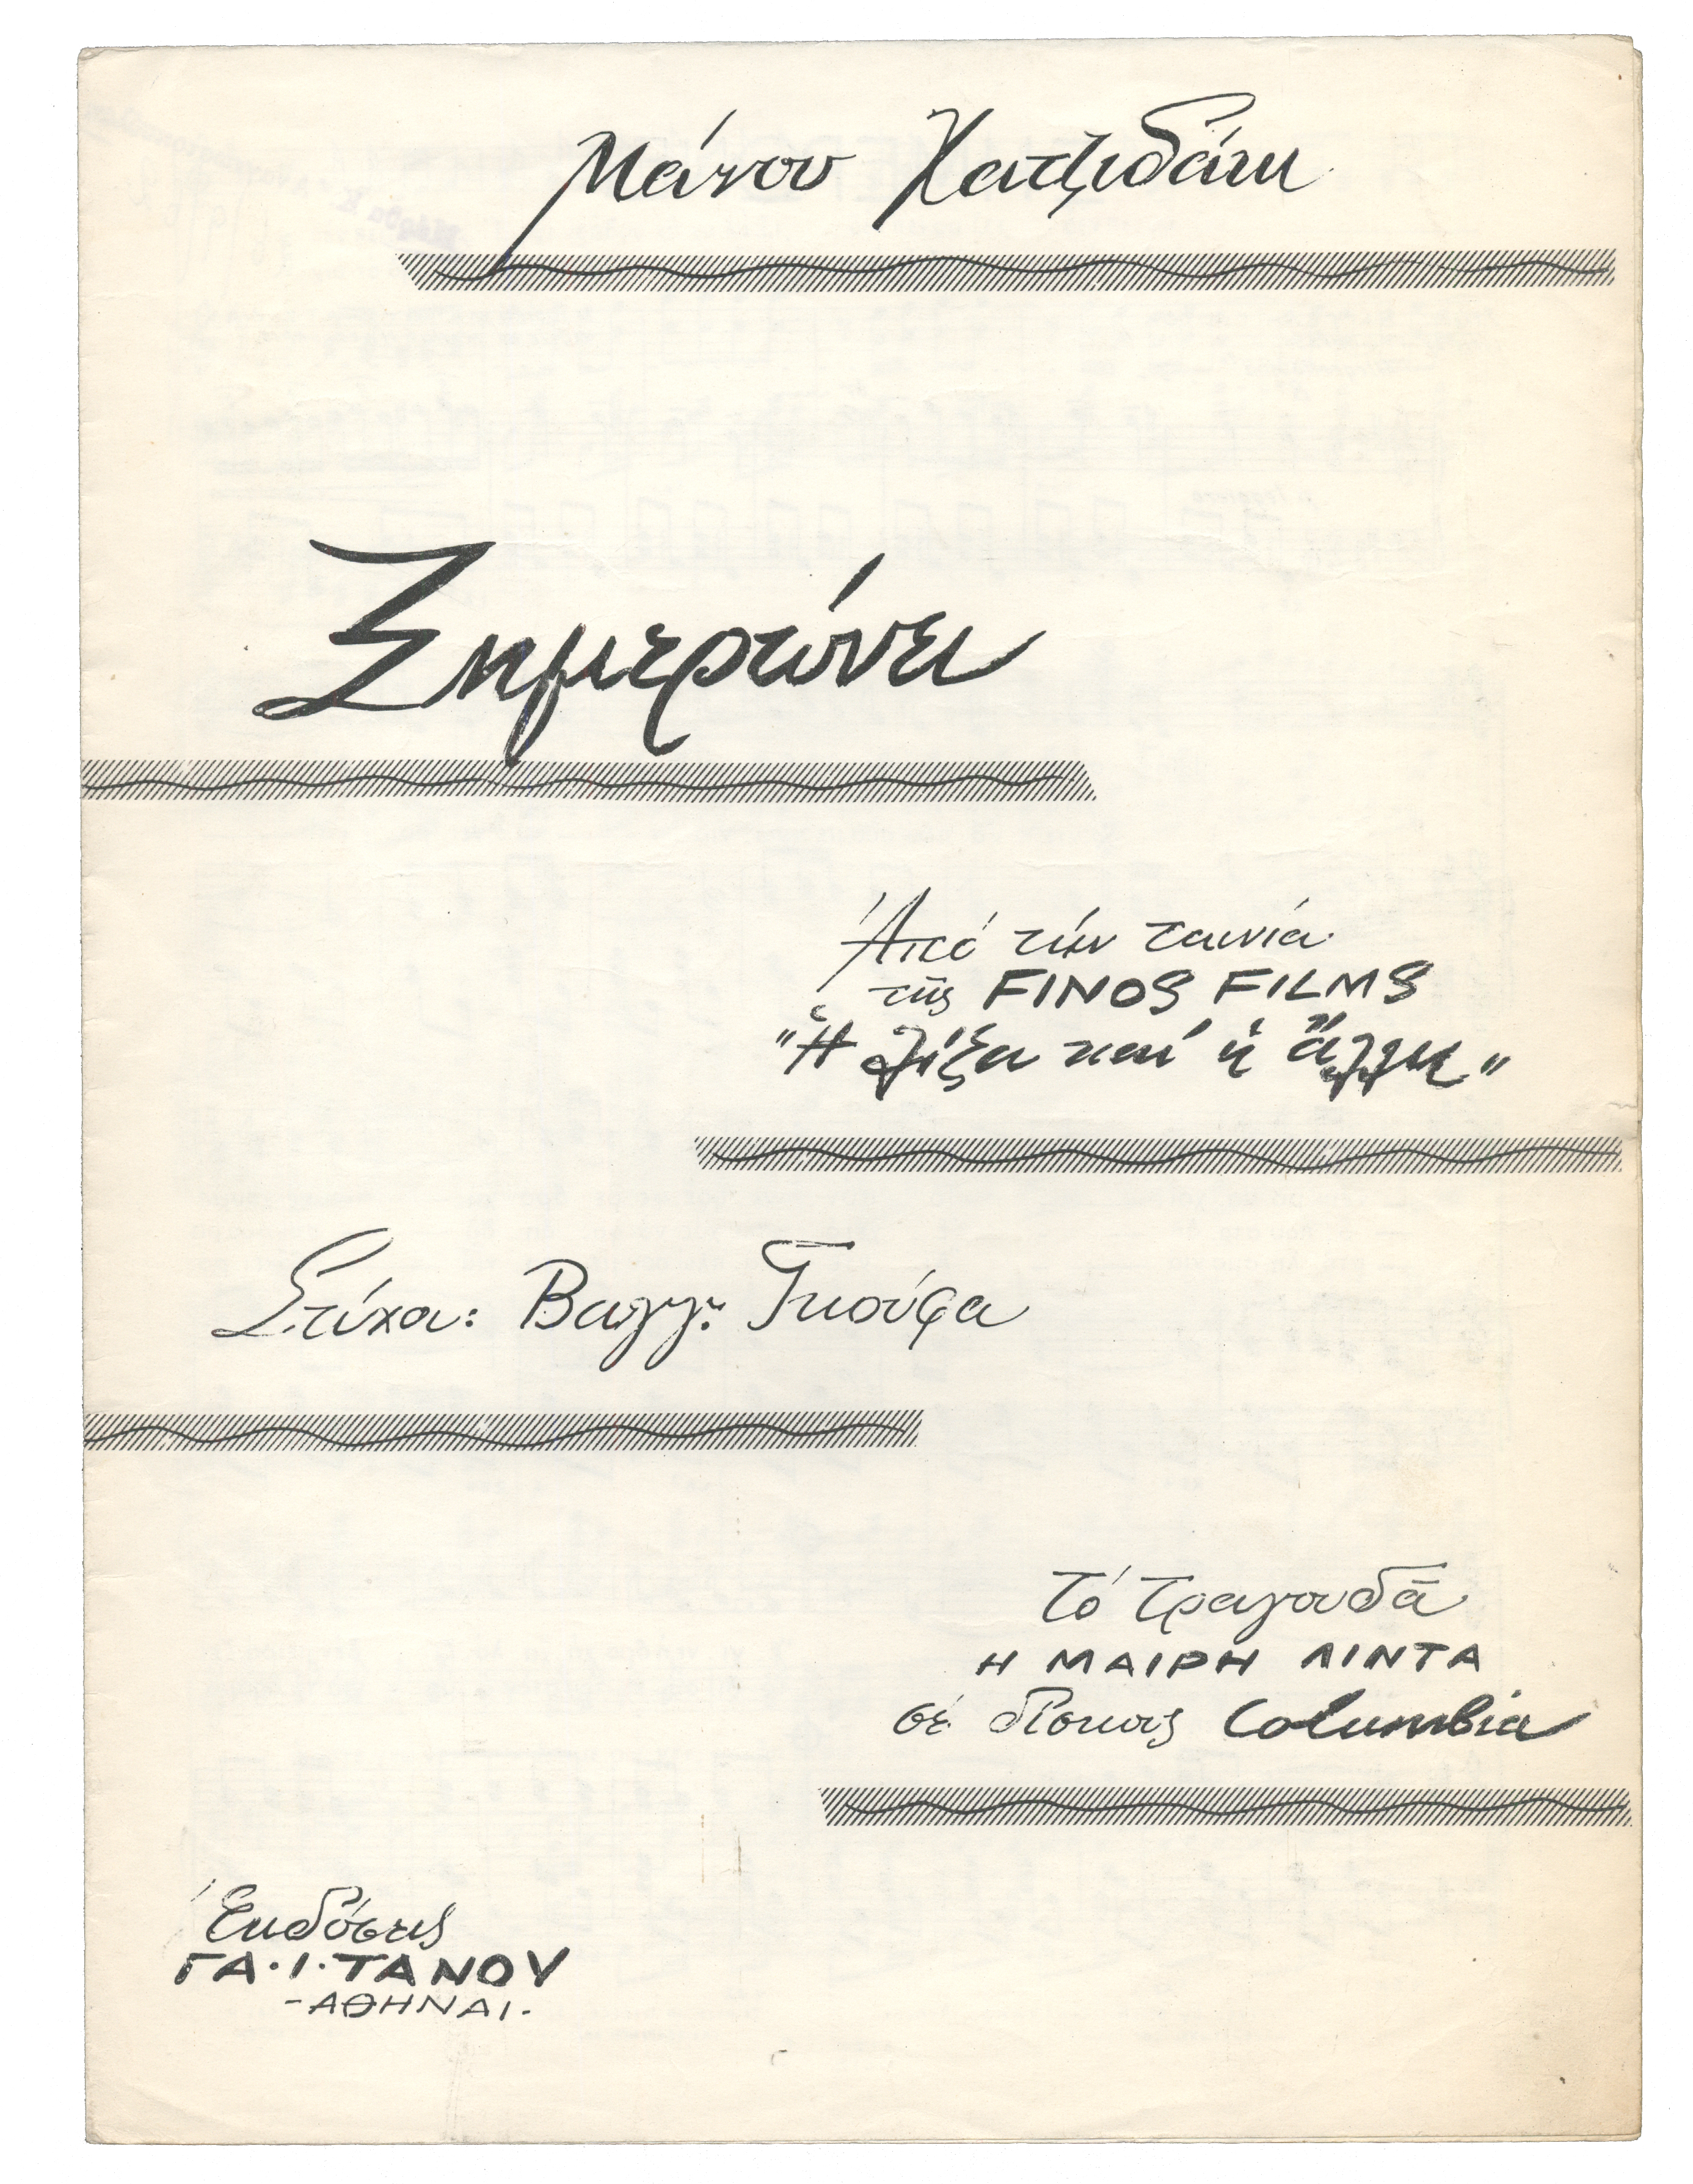 Μάνου Χατζιδάκι
Ξημερώνει
Ἀπό τήν ταινία
τῆς FINOS FILMS
"Ἡ Λίζα καί ἡ ἄλλη"
Στίχοι: Βαγγ. Γκούφα
Τό τραγουδᾶ
Η ΜΑΙΡΗ ΛΙΝΤΑ
σέ δίσκους Columbia
Ἐκδόσεις
ΓΑ.Ι.ΤΑΝΟΥ
-ΑΘΗΝΑΙ-